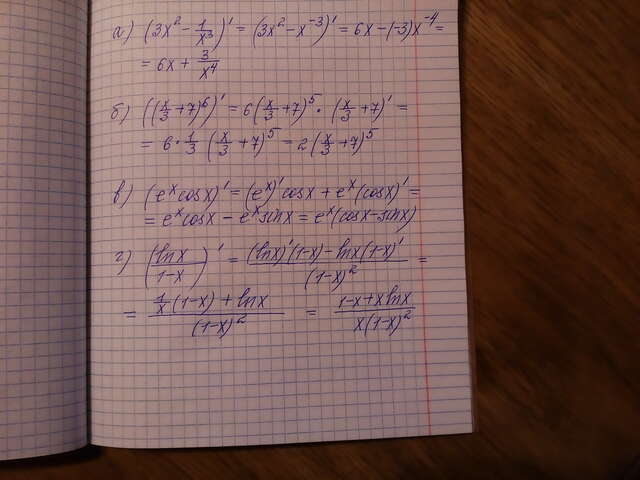 а) (3x² - 1/x³)' = (3x² - x⁻³)' = 6x - (-3)x⁻⁴ =
= 6x + 3/x⁴
б) ((x/3 + 7)⁶)' = 6(x/3 + 7)⁵ · (x/3 + 7)' =
= 6 · 1/3 (x/3 + 7)⁵ = 2(x/3 + 7)⁵
в) (eˣcosx)' = (eˣ)'cosx + eˣ(cosx)' =
= eˣcosx - eˣsinx = eˣ(cosx - sinx)
г) (lnx/(1-x))' = ((lnx)'(1-x) - lnx(1-x)')/(1-x)² =
= (1/x(1-x) + lnx)/(1-x)² = (1-x+xlnx)/(x(1-x)²)